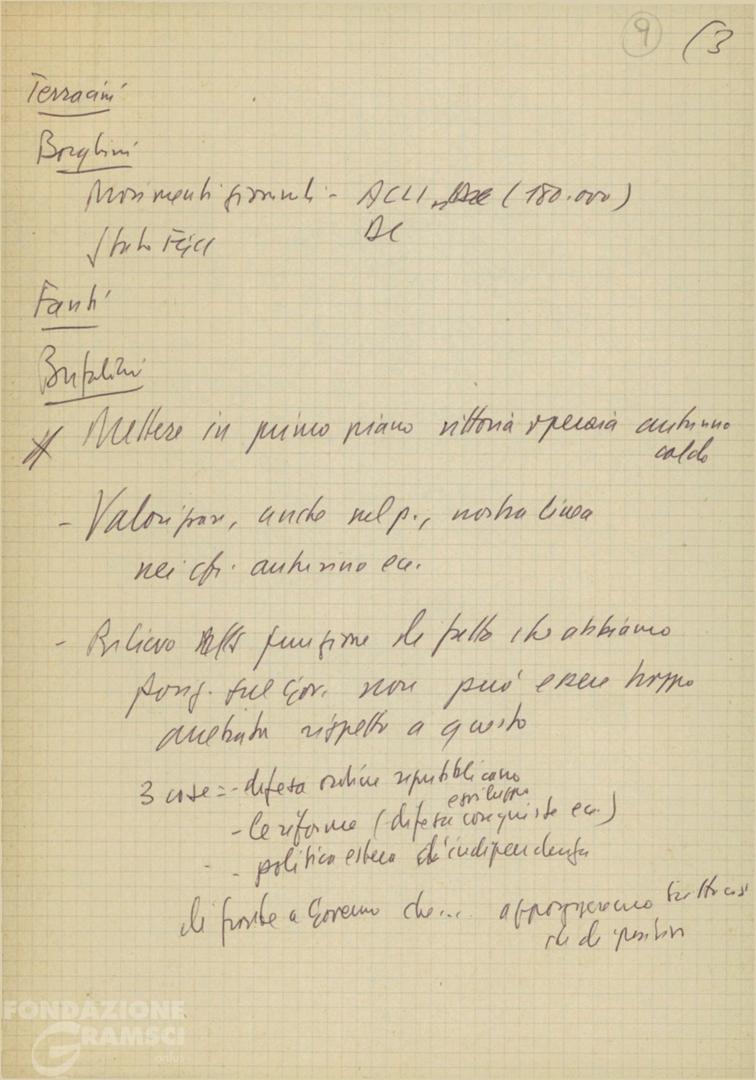 9 (3
Terracini
Borghini
Movimenti giovanili - ACLI (180.000)
DC
Stato FGCI
Fanti
Bufalini
Mettere in primo piano vittoria operaia autunno
caldo
- Valorizzare, anche nel p., nostra linea
nei cfr. autunno ecc.
- Rilievo funzione di fatto che abbiamo
Posiz. sul Gov. non può essere troppo
arretrata rispetto a questo
3 cose = - difesa ordine repubblicano
e sviluppo
- le riforme (difesa conquiste ecc.)
- politica estera d'indipendenza
di fronte a Governo che... appoggeremo tutto ciò
che di positivo
FONDAZIONE
GRAMSCI
onlus